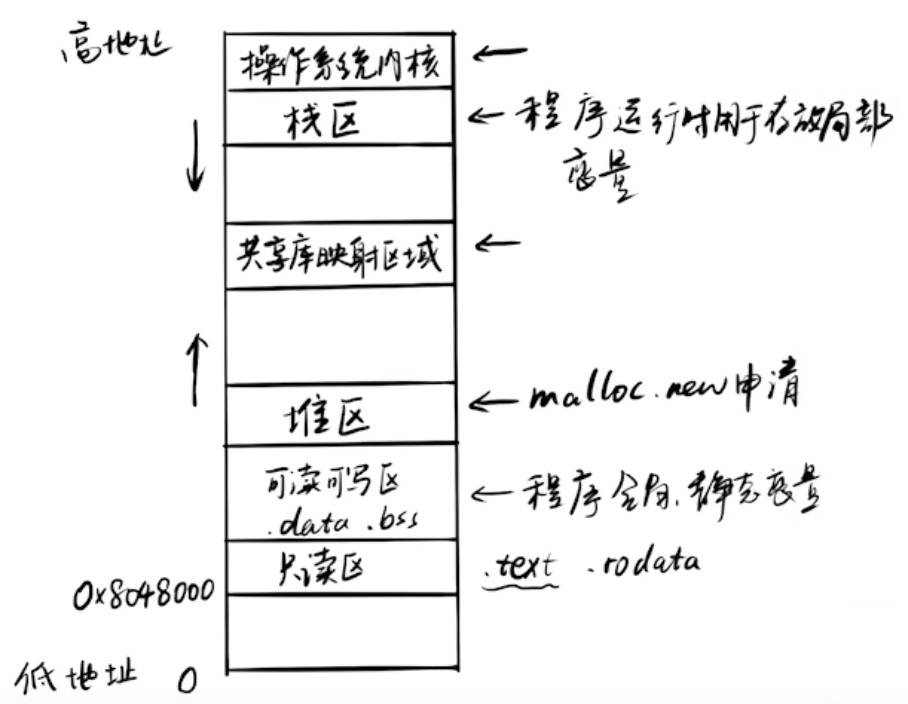 高地址
操作系统内核
栈区
程序运行时用于存放局部
变量
共享库映射区域
堆区
malloc.new申请
可读可写区
.data .bss
程序全局、静态变量
只读区
.text .rodata
0x8048000
低地址 0